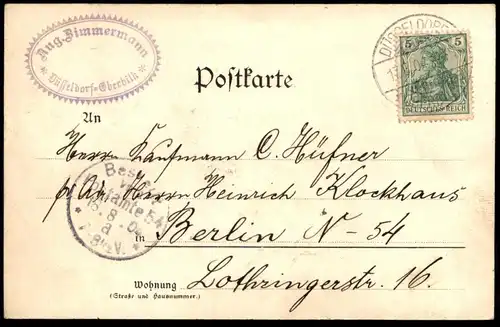 Aug. Zimmermann
* Düsseldorf-Oberbilk *
DÜSSELDORF
5 5
DEUTSCHES REICH
Postkarte
An
Herrn Kaufmann C. Hüfner
p/Adr. Herrn Heinrich Klockhaus
Best.
54
8
a
V.
in Berlin N-54
Wohnung Lothringerstr. 16.
(Straße und Hausnummer.)